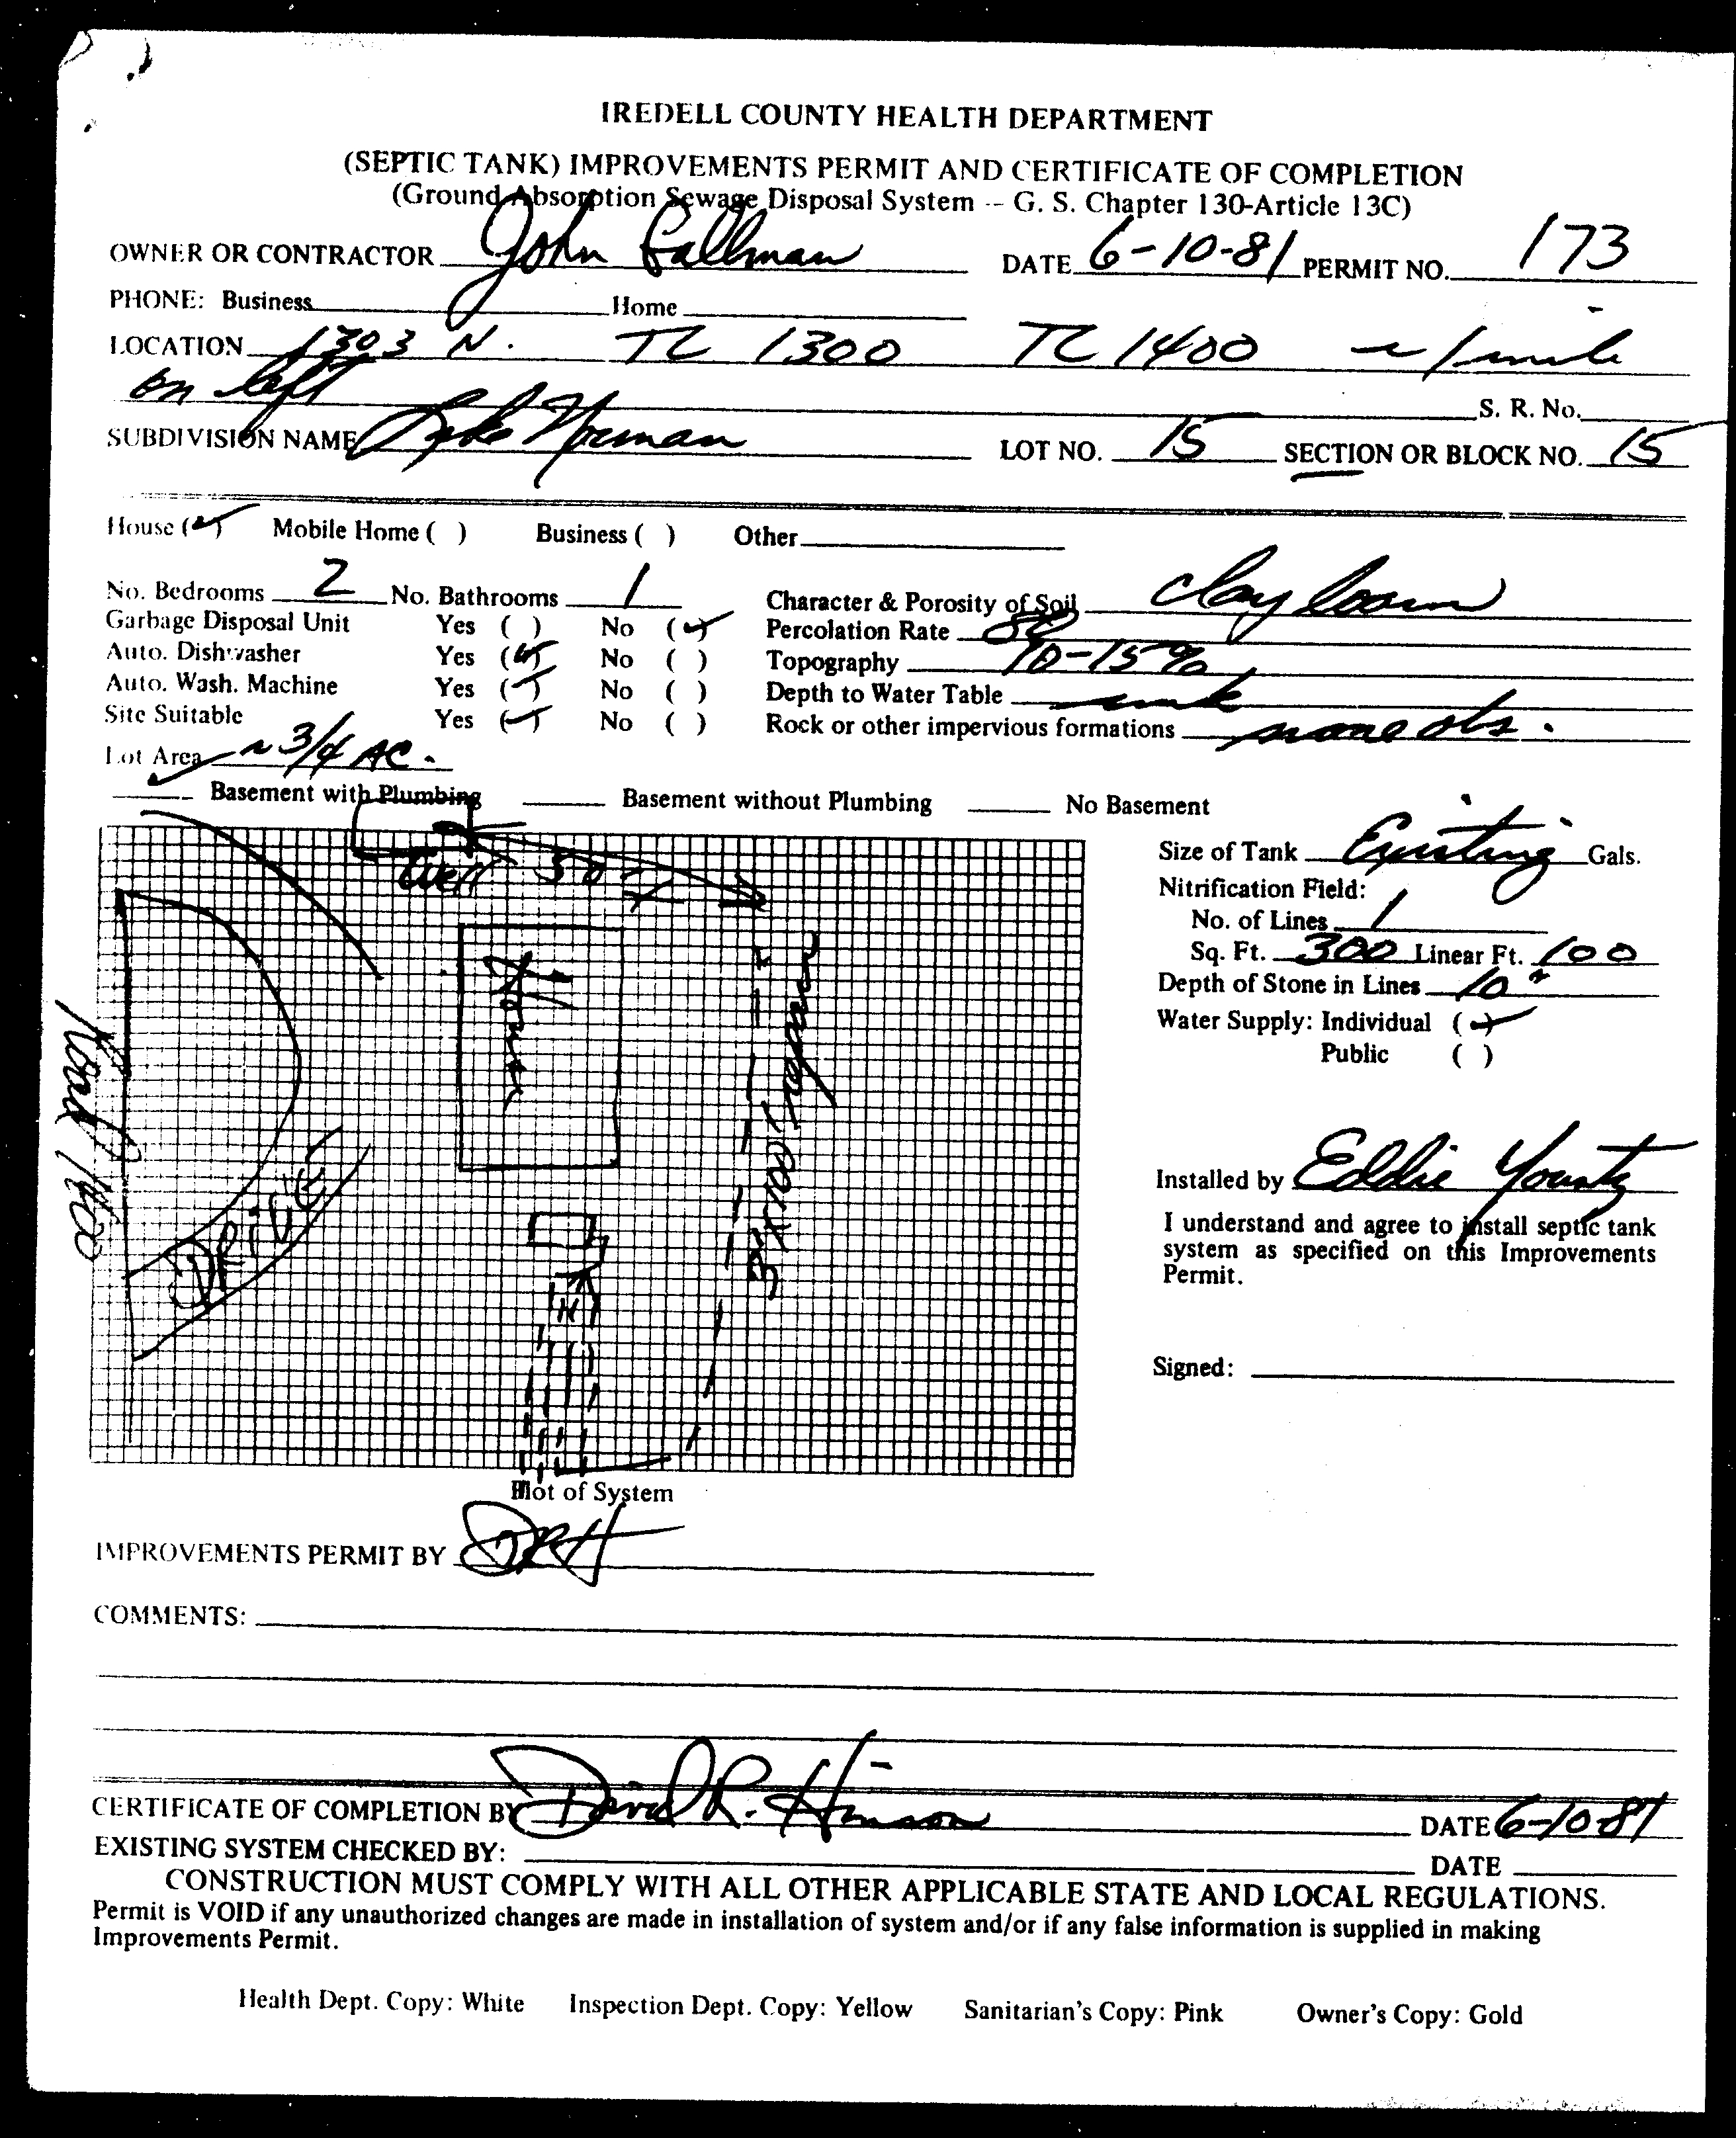 IREDELL COUNTY HEALTH DEPARTMENT
(SEPTIC TANK) IMPROVEMENTS PERMIT AND CERTIFICATE OF COMPLETION
(Ground Absorption Sewage Disposal System -- G. S. Chapter 130-Article 13C)
OWNER OR CONTRACTOR John DATE 6-10-81 PERMIT NO. 173
PHONE: Business Home
LOCATION 1303 N. TL 1300 TL 1400 ~ 1 mile
on left
S. R. No.
SUBDIVISION NAME Lake Norman LOT NO. 15 SECTION OR BLOCK NO. 15
House (✓) Mobile Home ( ) Business ( ) Other
No. Bedrooms 2 No. Bathrooms 1 Character & Porosity of Soil clay loam
Garbage Disposal Unit Yes ( ) No (✓) Percolation Rate
Auto. Dishwasher Yes (✓) No ( ) Topography 10-15%
Auto. Wash. Machine Yes (✓) No ( ) Depth to Water Table unk
Site Suitable Yes (✓) No ( ) Rock or other impervious formations none obs.
Lot Area ~ 3/4 AC.
✓ Basement with Plumbing Basement without Plumbing No Basement
Well 50'
Size of Tank Existing Gals.
Nitrification Field:
No. of Lines 1
Sq. Ft. 300 Linear Ft. 100
Depth of Stone in Lines 10"
Water Supply: Individual (✓)
Public ( )
House
3'x100'
Road 1400
DRIVE
Installed by Eddie Yountz
I understand and agree to install septic tank
system as specified on this Improvements
Permit.
Signed:
Plot of System
IMPROVEMENTS PERMIT BY DRH
COMMENTS:
CERTIFICATE OF COMPLETION BY David R. Hinson DATE 6-10-81
EXISTING SYSTEM CHECKED BY: DATE
CONSTRUCTION MUST COMPLY WITH ALL OTHER APPLICABLE STATE AND LOCAL REGULATIONS.
Permit is VOID if any unauthorized changes are made in installation of system and/or if any false information is supplied in making
Improvements Permit.
Health Dept. Copy: White Inspection Dept. Copy: Yellow Sanitarian's Copy: Pink Owner's Copy: Gold